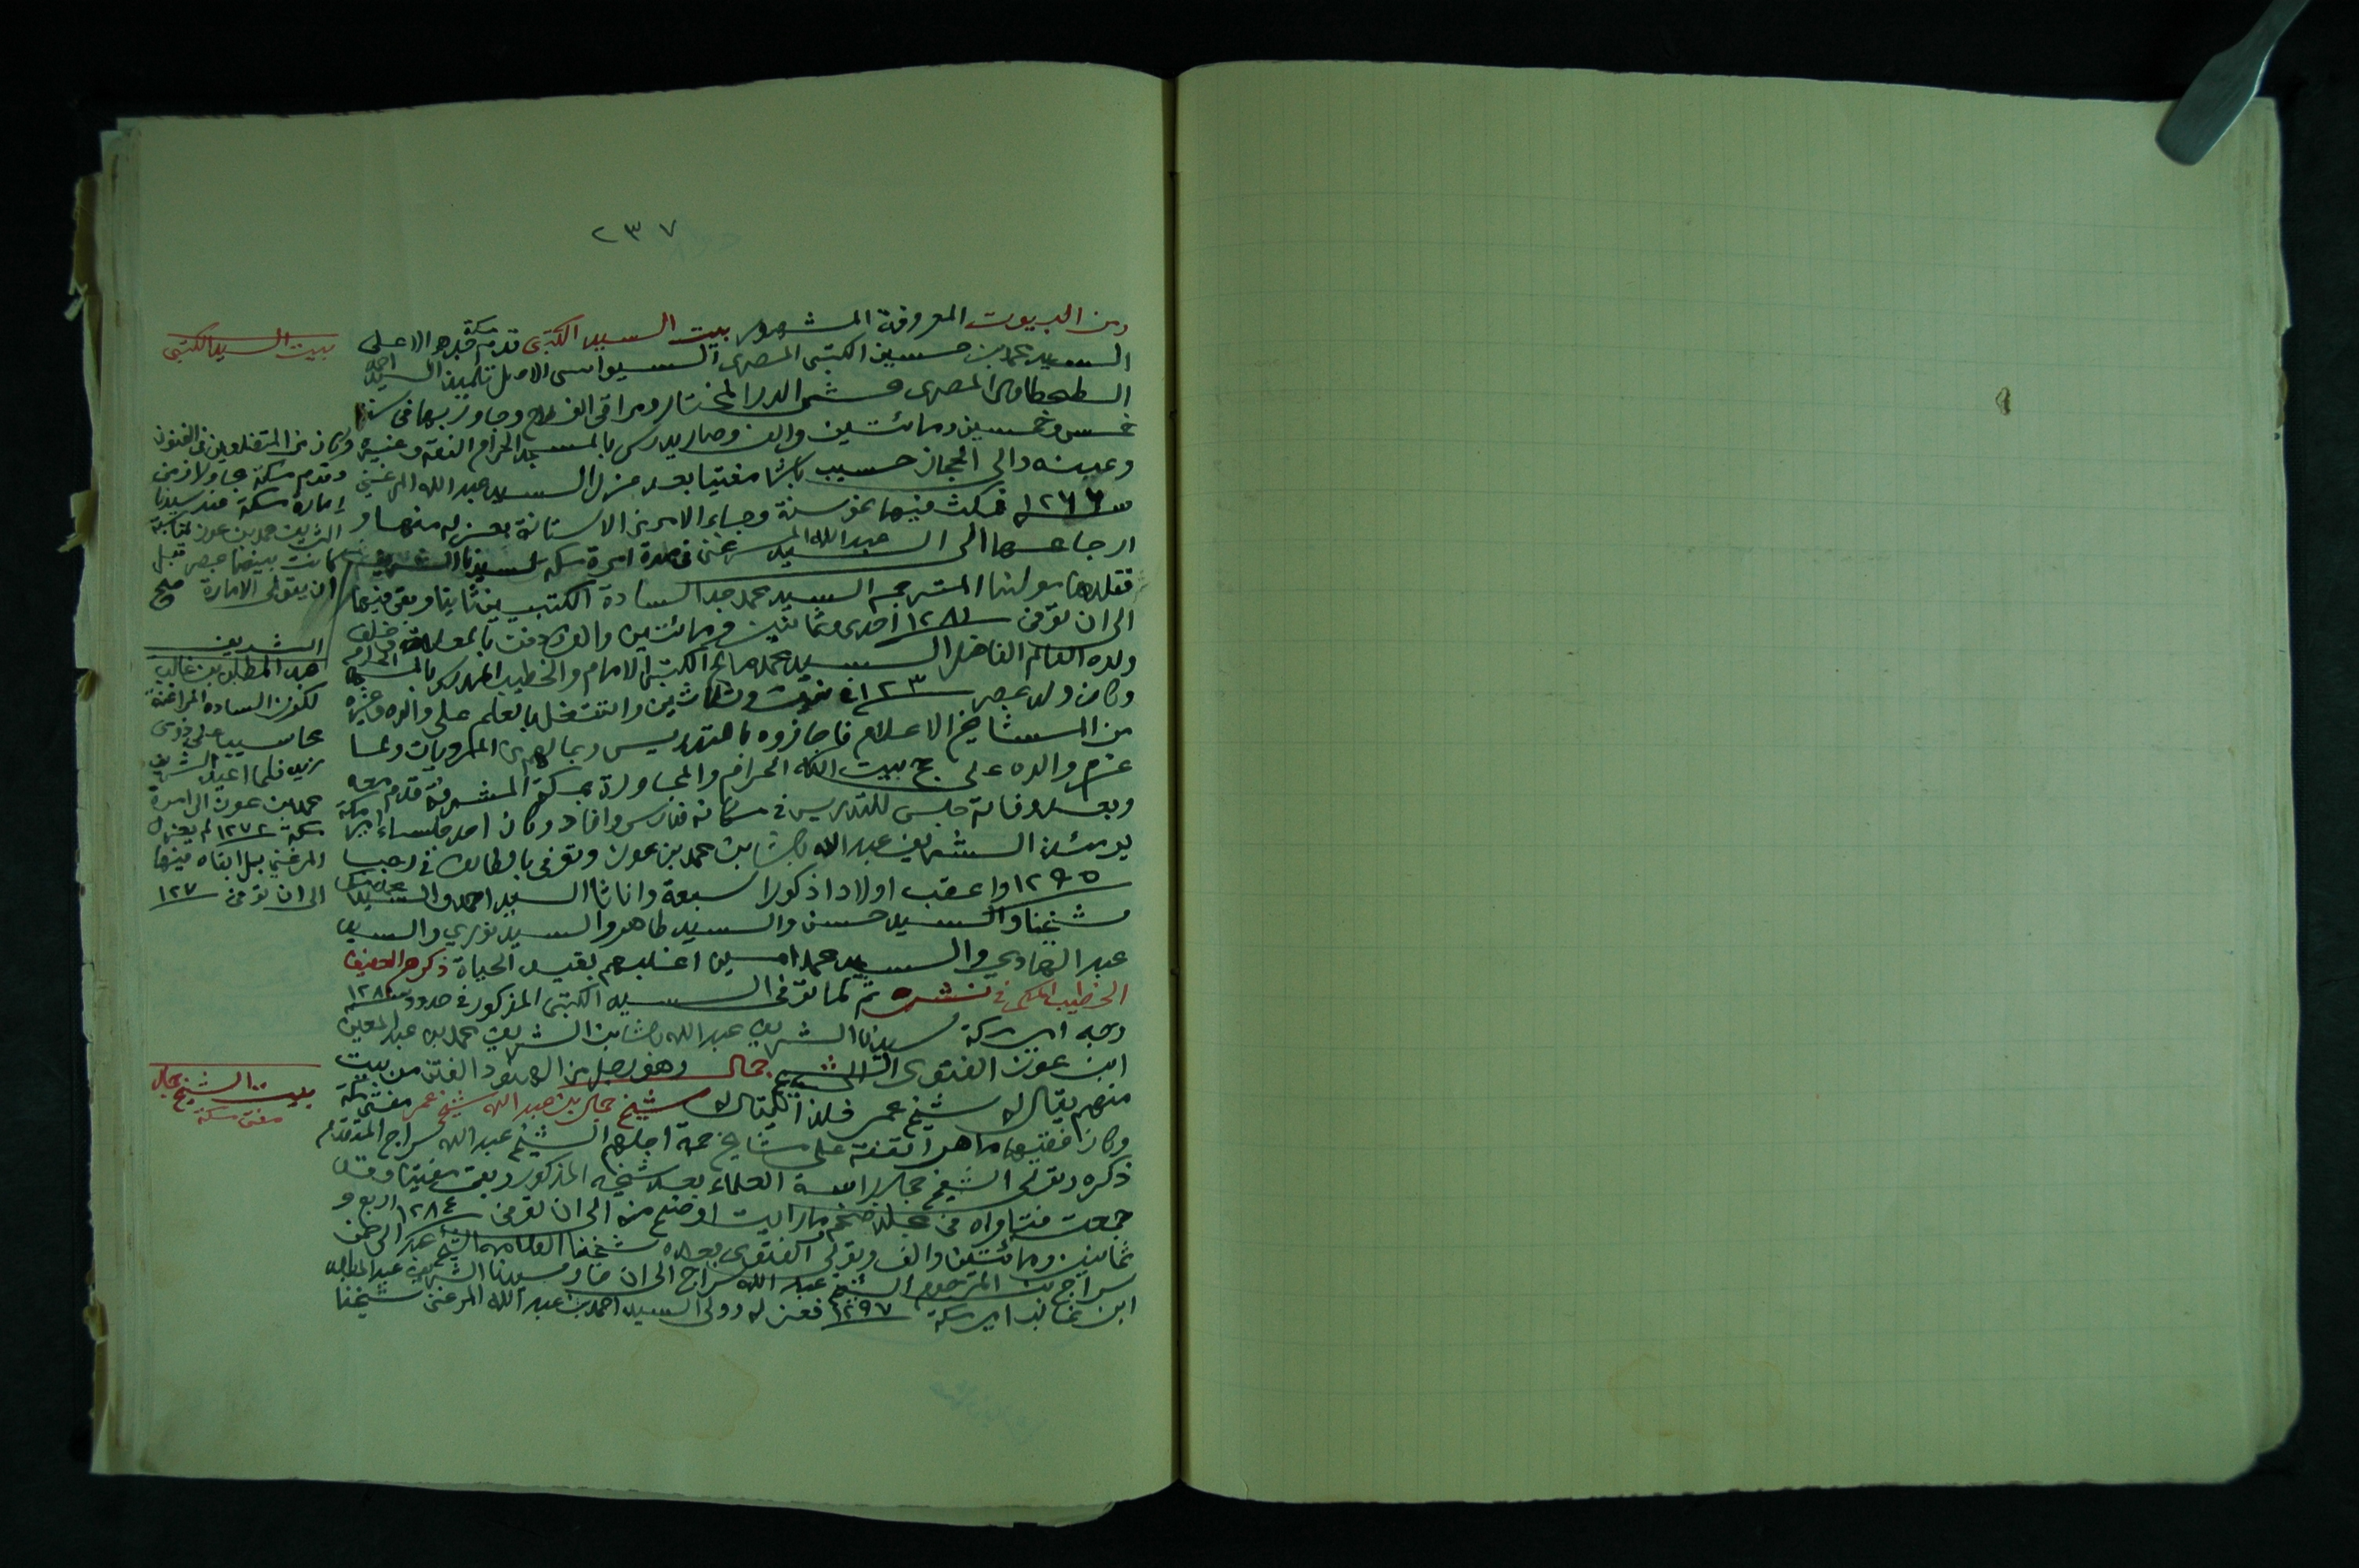 ٢٣٧
ومن البيوت المعروفة المشهور بيت السيد الكتبى قدم مكة جدهم الاعلى
السيد محمد بن حسين الكتبى المصرى السيواسى الاصل تلميذ السيد احمد
الطحطاوى المصرى محشى الدر المختار ومراقى الفلاح وجاور بها فى سنة
خمس وخمسين ومائتين والف وصار يدرس بالمسجد الحرام الفقه وغيره
وعينه والى الحجاز حسيب باشا مفتيا بعد عزل السيد عبد الله المرغنى
سنة ١٢٦٦ فمكث فيها نحو سنة وجاء الامر من الاستانة بعزله منها و
ارجاعها الى السيد عبد الله المرغنى فى مدة امرة مكة لسيدنا الشريف
فقلدها مولنا المترجم السيد محمد جد السادة الكتبيين ثانيا وبقى فيها
الى ان توفى سنة ١٢٨١ احدى وثمانين ومائتين والف ودفن بالمعلاة وخلف
ولده العالم الفاضل السيد محمد صالح الكتبى الامام والخطيب المدرس بالمسجد الحرام
وكان ولد بمصر سنة ١٢٣ وثلاثين واشتغل بالعلم على والده وغيره
من المشايخ الاعلام فاجازوه بالتدريس وبما لهم من المرويات ولما
عزم والده على حج بيت الله الحرام والمجاورة بمكة المشرفة قدم معه
وبعد وفاته جلس للتدريس فى مكانه فدرس وافاد وكان احد جلساء امير مكة
يومئذ الشريف عبد الله باشا بن محمد بن عون وتوفى بالطائف فى رجب
١٢٩٥ واعقب اولادا ذكورا سبعة واناثا السيد احمد والسيد محمد مكى
شيخنا والسيد حسن والسيد طاهر والسيد نوري والسيد
عبد الهادي والسيد محمد امين اغلبهم بقيد الحياة ذكرهم الحفيف
الخطيب المكى فى نشره ثم لما توفى السيد الكتبى المذكور فى حدود سنة ١٢٨٠
وجه امير مكة سيدنا الشريف عبد الله باشا بن الشريف محمد بن عبد المعين
ابن عون الفتوى الى الشيخ جمال وهو رجل من الهنود الفتن من بيت
منهم يقال له شيخ عمر فلذا يقال له شيخ جمال بن عبد الله شيخ عمر مفتى مكة
وكان فقيها ماهرا تفقه على مشايخ جمة اجلهم الشيخ عبد الله سراج المتقدم
ذكره وتولى الشيخ جمال رئاسة العلماء بعد شيخه المذكور وبقى مفتيا وقد
جمعت فتاواه فى مجلد ضخم ما رايت اوضح منه الى ان توفى سنة ١٢٨٤ اربع و
ثمانين ومائتين والف وتولى الفتوى بعده شيخنا العلامة الشيخ عبد الرحمن
سراج بن المرحوم الشيخ عبد الله سراج الى ان صار سيدنا الشريف عبد المطلب
ابن غالب امير مكة سنة ١٢٩٧ فعزله وولى السيد احمد بن عبد الله المرغنى شيخنا
بيت السيد الكتبى
وكان من المتضلعين فى الفنون
وقدم مكة مجاورا زمن
امارة مكة عند سيدنا
الشريف محمد بن عون
كانت بينهما بمصر قبل
ان يتولى الامارة صح
الشريف
عبد المطلب بن غالب
لكون السادة المراغنة
محاسيب على ذوى
زيد فلما اعيد الشريف
محمد بن عون الى امرة
مكة ١٢٧٢ لم يعزل
المرغنى بل ابقاه فيها
الى ان توفى سنة ١٢٧
بيت الشيخ جمال
مفتى مكة